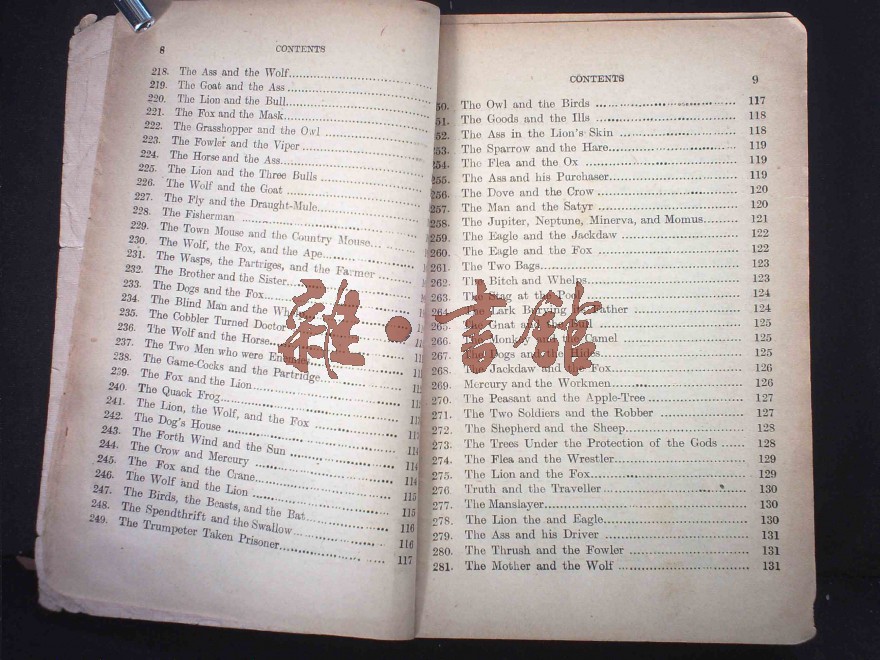 8 CONTENTS
218. The Ass and the Wolf
219. The Goat and the Ass
220. The Lion and the Bull
221. The Fox and the Mask
222. The Grasshopper and the Owl
223. The Fowler and the Viper
224. The Horse and the Ass
225. The Lion and the Three Bulls
226. The Wolf and the Goat
227. The Fly and the Draught-Mule
228. The Fisherman
229. The Town Mouse and the Country Mouse
230. The Wolf, the Fox, and the Ape
231. The Wasps, the Partriges, and the Farmer
232. The Brother and the Sister
233. The Dogs and the Fox
234. The Blind Man and the
235. The Cobbler Turned Doctor
236. The Wolf and the Horse
237. The Two Men who were
238. The Game-Cocks and the Partridge
239. The Fox and the Lion
240. The Quack Frog
241. The Lion, the Wolf, and the Fox
242. The Dog's House
243. The Forth Wind and the Sun
244. The Crow and Mercury
245. The Fox and the Crane 114
246. The Wolf and the Lion 115
247. The Birds, the Beasts, and the Bat 115
248. The Spendthrift and the Swallow 116
249. The Trumpeter Taken Prisoner 117
CONTENTS 9
50. The Owl and the Birds 117
51. The Goods and the Ills 118
52. The Ass in the Lion's Skin 118
253. The Sparrow and the Hare 119
254. The Flea and the Ox 119
255. The Ass and his Purchaser 119
256. The Dove and the Crow 120
257. The Man and the Satyr 120
258. The Jupiter, Neptune, Minerva, and Momus 121
259. The Eagle and the Jackdaw 122
260. The Eagle and the Fox 122
261. The Two Bags 123
262. The Bitch and Whelps 123
263. The Stag at the Pool 124
264. The Lark Burying her Father 124
265. The Gnat and the Bull 125
266. The Monkey and the Camel 125
267. The Dogs and the Hides 125
268. The Jackdaw and the Fox 126
269. Mercury and the Workmen 126
270. The Peasant and the Apple-Tree 127
271. The Two Soldiers and the Robber 127
272. The Shepherd and the Sheep 128
273. The Trees Under the Protection of the Gods 128
274. The Flea and the Wrestler 129
275. The Lion and the Fox 129
276. Truth and the Traveller 130
277. The Manslayer 130
278. The Lion the and Eagle 130
279. The Ass and his Driver 131
280. The Thrush and the Fowler 131
281. The Mother and the Wolf 131
雜·書館